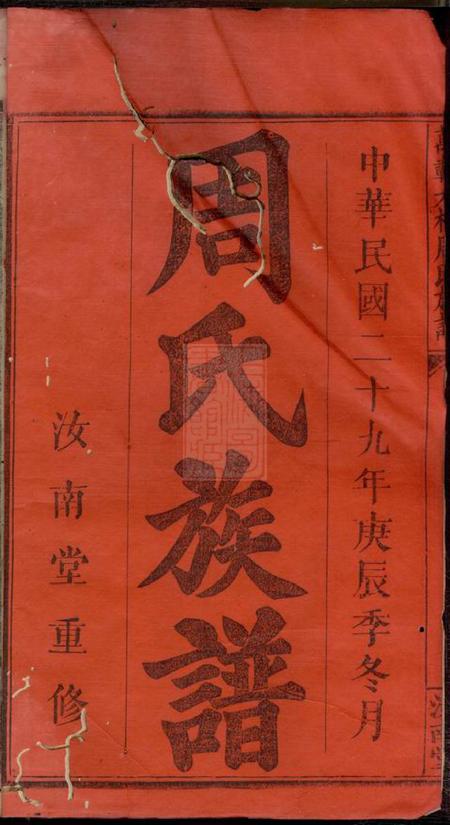 中華民國二十九年庚辰季冬月
周氏族譜
汝南堂重修